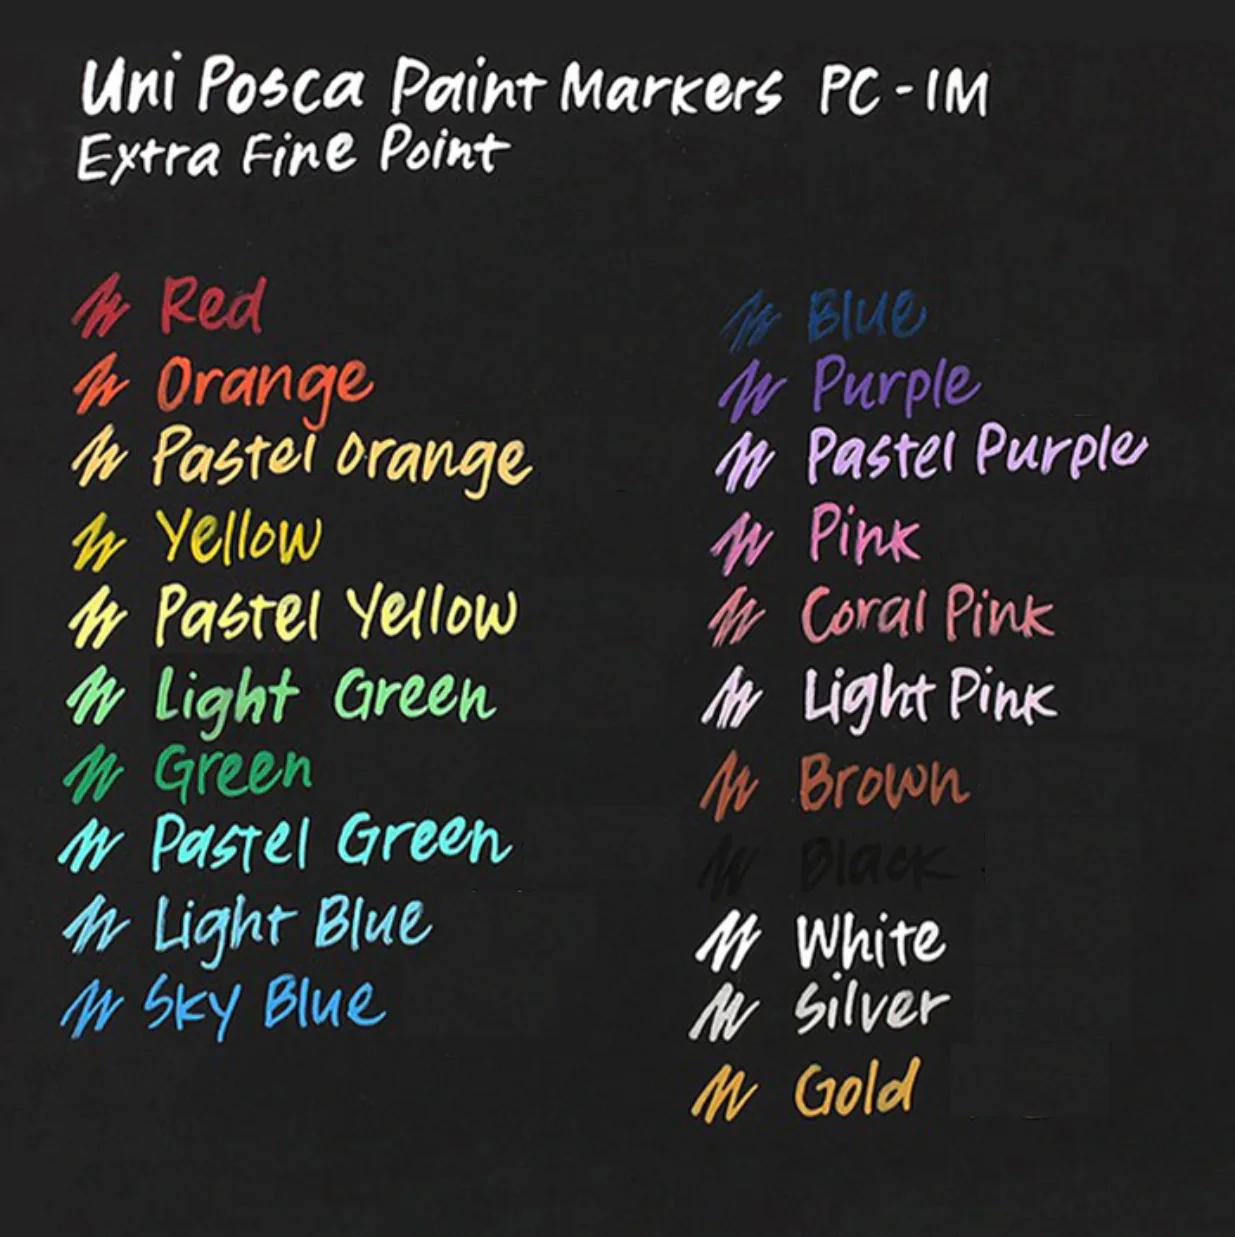 Uni Posca Paint Markers PC-1M
Extra Fine Point
Red
Orange
Pastel Orange
Yellow
Pastel Yellow
Light Green
Green
Pastel Green
Light Blue
Sky Blue
Blue
Purple
Pastel Purple
Pink
Coral Pink
Light Pink
Brown
Black
White
Silver
Gold